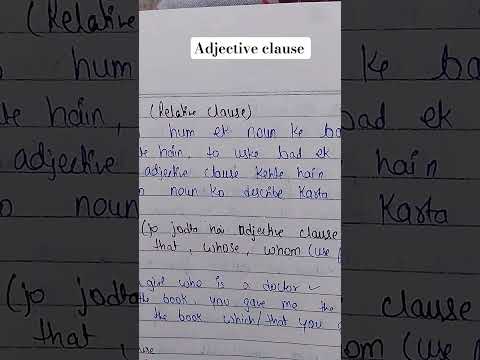 Adjective clause
(Relative clause)
hum ek noun ke ba
te hain, to uske bad ek
adjective clause kehte hain
noun ko describe karta
(jo jodta hai adjective clause
that, whose, whom (use
girl who is a doctor ✓
the book you gave me the
the book which/that you